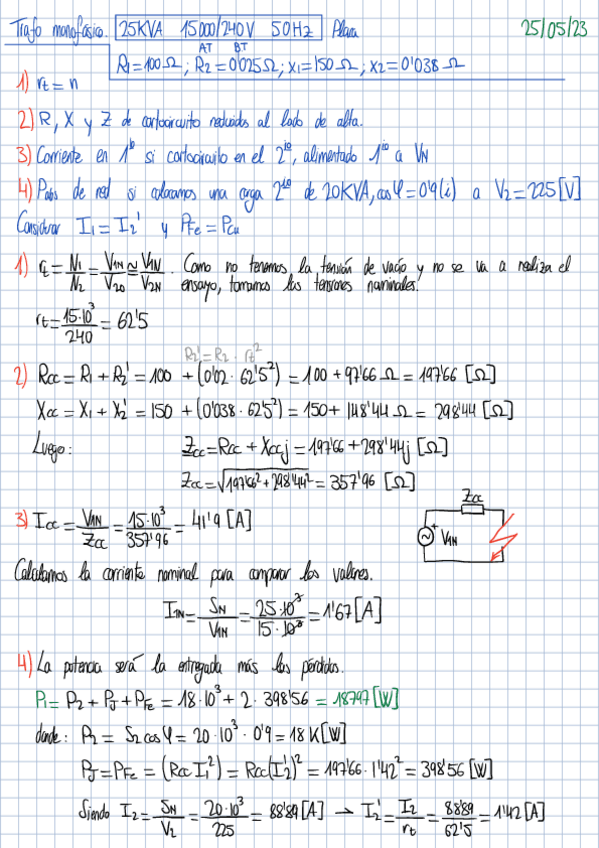 Trafo monofásico. 25KVA 15000/240V 50Hz Placa 25/05/23
AT BT
R1=100Ω; R2=0'025Ω; X1=150Ω; X2=0'038Ω
1) rt=n
2) R, X y Z de cortocircuito reducidos al lado de alta.
3) Corriente en 1rio si cortocircuito en el 2rio, alimentado 1rio a VN
4) Pabs de red si colocamos una carga 2rio de 20KVA, cosφ=0'9(i) a V2=225[V]
Considerar I1=I2' y PFe=PCu
1) rt=N1/N2=V1N/V20≃V1N/V2N. Como no tenemos la tensión de vacío y no se va a realiza el
ensayo, tomamos las tensiones nominales.
rt=15·10³/240=62'5
R2'=R2·rt²
2) Rcc=R1+R2'=100+(0'02·62'5²)=100+97'66Ω=197'66[Ω]
Xcc=X1+X2'=150+(0'038·62'5²)=150+148'44Ω=298'44[Ω]
Luego: Zcc=Rcc+Xccj=197'66+298'44j[Ω]
Zcc=√197'66²+298'44²=357'96[Ω]
3) Icc=V1N/Zcc=15·10³/357'96=41'9[A]
Zcc
V1N
Calculamos la corriente nominal para comparar los valores.
I1N=SN/V1N=25·10³/15·10³=1'67[A]
4) La potencia será la entregada más las pérdidas.
P1=P2+PJ+PFe=18·10³+2·398'56=18797[W]
donde: P2=S2cosφ=20·10³·0'9=18K[W]
PJ=PFe=(Rcc I1²)=Rcc(I2')²=197'66·1'42²=398'56[W]
Siendo I2=SN/V2=20·10³/225=88'89[A] → I2'=I2/rt=88'89/62'5=1'42[A]